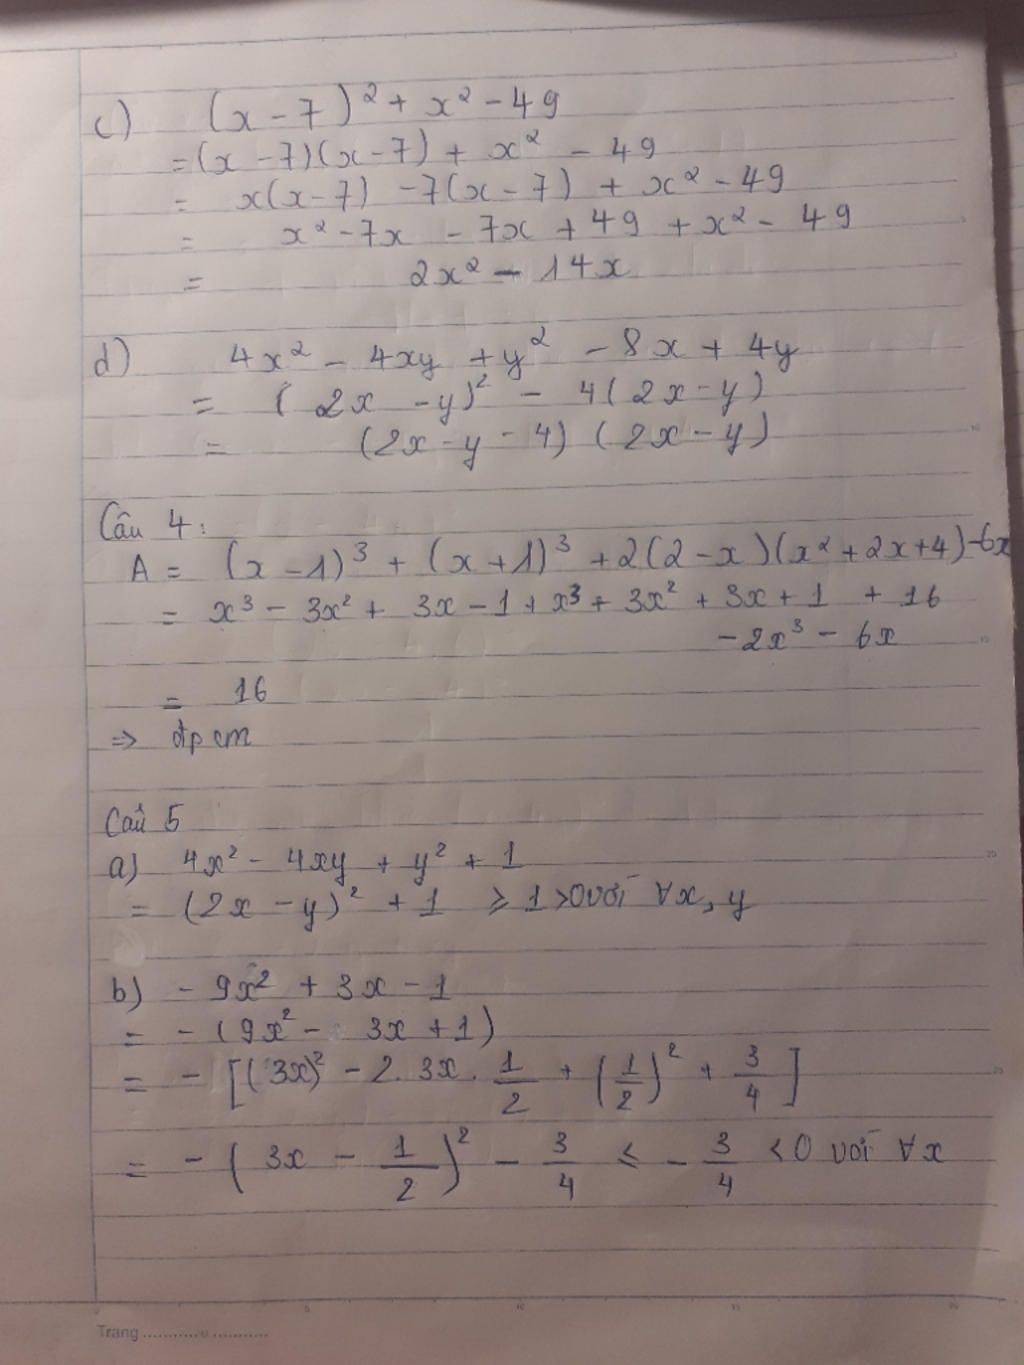 c) (x - 7)² + x² - 49
= (x - 7)(x - 7) + x² - 49
= x(x - 7) - 7(x - 7) + x² - 49
= x² - 7x - 7x + 49 + x² - 49
= 2x² - 14x
d) 4x² - 4xy + y² - 8x + 4y
= (2x - y)² - 4(2x - y)
= (2x - y - 4) (2x - y)
Câu 4:
A = (x - 1)³ + (x + 1)³ + 2(2 - x)(x² + 2x + 4) - 6x
= x³ - 3x² + 3x - 1 + x³ + 3x² + 3x + 1 + 16
- 2x³ - 6x
= 16
=> đpcm
Câu 5
a) 4x² - 4xy + y² + 1
= (2x - y)² + 1 ≥ 1 > 0 với ∀x, y
b) - 9x² + 3x - 1
= - (9x² - 3x + 1)
= - [(3x)² - 2. 3x. 1/2 + (1/2)² + 3/4]
= - (3x - 1/2)² - 3/4 ≤ - 3/4 < 0 với ∀x
Trang